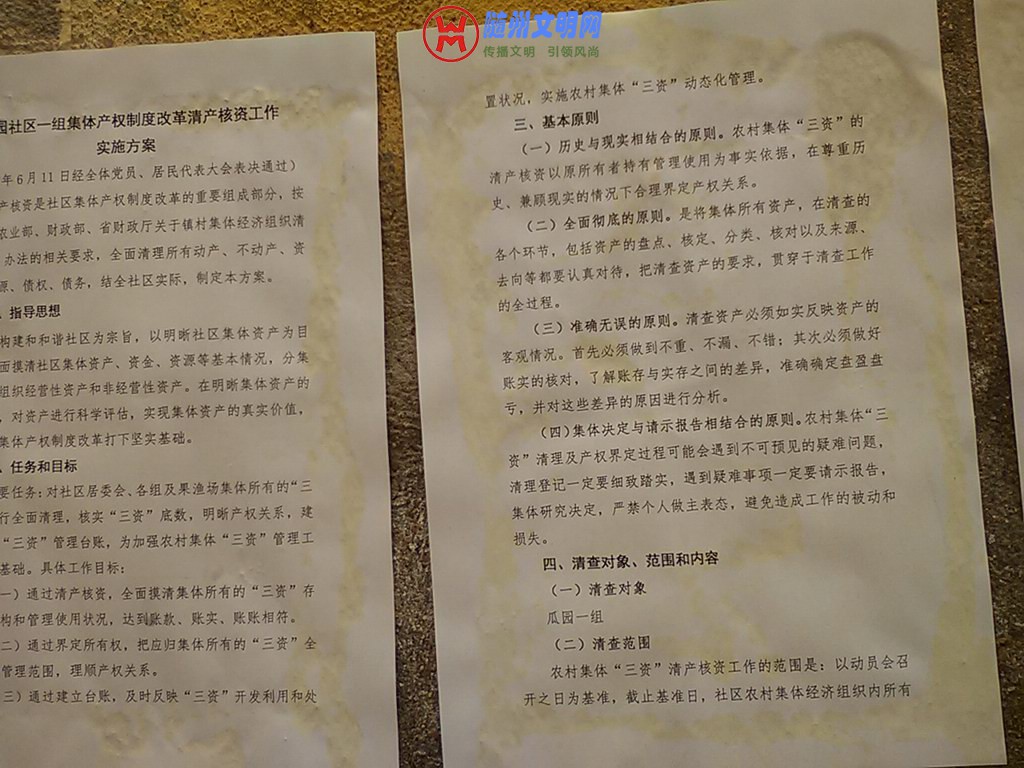 随州文明网
传播文明 引领风尚
园社区一组集体产权制度改革清产核资工作
实施方案
年6月11日经全体党员、居民代表大会表决通过）
产核资是社区集体产权制度改革的重要组成部分，按
农业部、财政部、省财政厅关于镇村集体经济组织清
办法的相关要求，全面清理所有动产、不动产、资
源、债权、债务，结全社区实际，制定本方案。
、指导思想
构建和和谐社区为宗旨，以明晰社区集体资产为目
面摸清社区集体资产、资金、资源等基本情况，分集
组织经营性资产和非经营性资产。在明晰集体资产的
，对资产进行科学评估，实现集体资产的真实价值，
集体产权制度改革打下坚实基础。
、任务和目标
要任务：对社区居委会、各组及果渔场集体所有的“三
行全面清理，核实“三资”底数，明晰产权关系，建
“三资”管理台账，为加强农村集体“三资”管理工
基础。具体工作目标：
一）通过清产核资，全面摸清集体所有的“三资”存
构和管理使用状况，达到账款、账实、账账相符。
二）通过界定所有权，把应归集体所有的“三资”全
管理范围，理顺产权关系。
三）通过建立台账，及时反映“三资”开发利用和处
置状况，实施农村集体“三资”动态化管理。
三、基本原则
（一）历史与现实相结合的原则。农村集体“三资”的
清产核资以原所有者持有管理使用为事实依据，在尊重历
史、兼顾现实的情况下合理界定产权关系。
（二）全面彻底的原则。是将集体所有资产，在清查的
各个环节，包括资产的盘点、核定、分类、核对以及来源、
去向等都要认真对待，把清查资产的要求，贯穿于清查工作
的全过程。
（三）准确无误的原则。清查资产必须如实反映资产的
客观情况。首先必须做到不重、不漏、不错；其次必须做好
账实的核对，了解账存与实存之间的差异，准确确定盘盈盘
亏，并对这些差异的原因进行分析。
（四）集体决定与请示报告相结合的原则。农村集体“三
资”清理及产权界定过程可能会遇到不可预见的疑难问题，
清理登记一定要细致踏实，遇到疑难事项一定要请示报告，
集体研究决定，严禁个人做主表态，避免造成工作的被动和
损失。
四、清查对象、范围和内容
（一）清查对象
瓜园一组
（二）清查范围
农村集体“三资”清产核资工作的范围是：以动员会召
开之日为基准，截止基准日，社区农村集体经济组织内所有